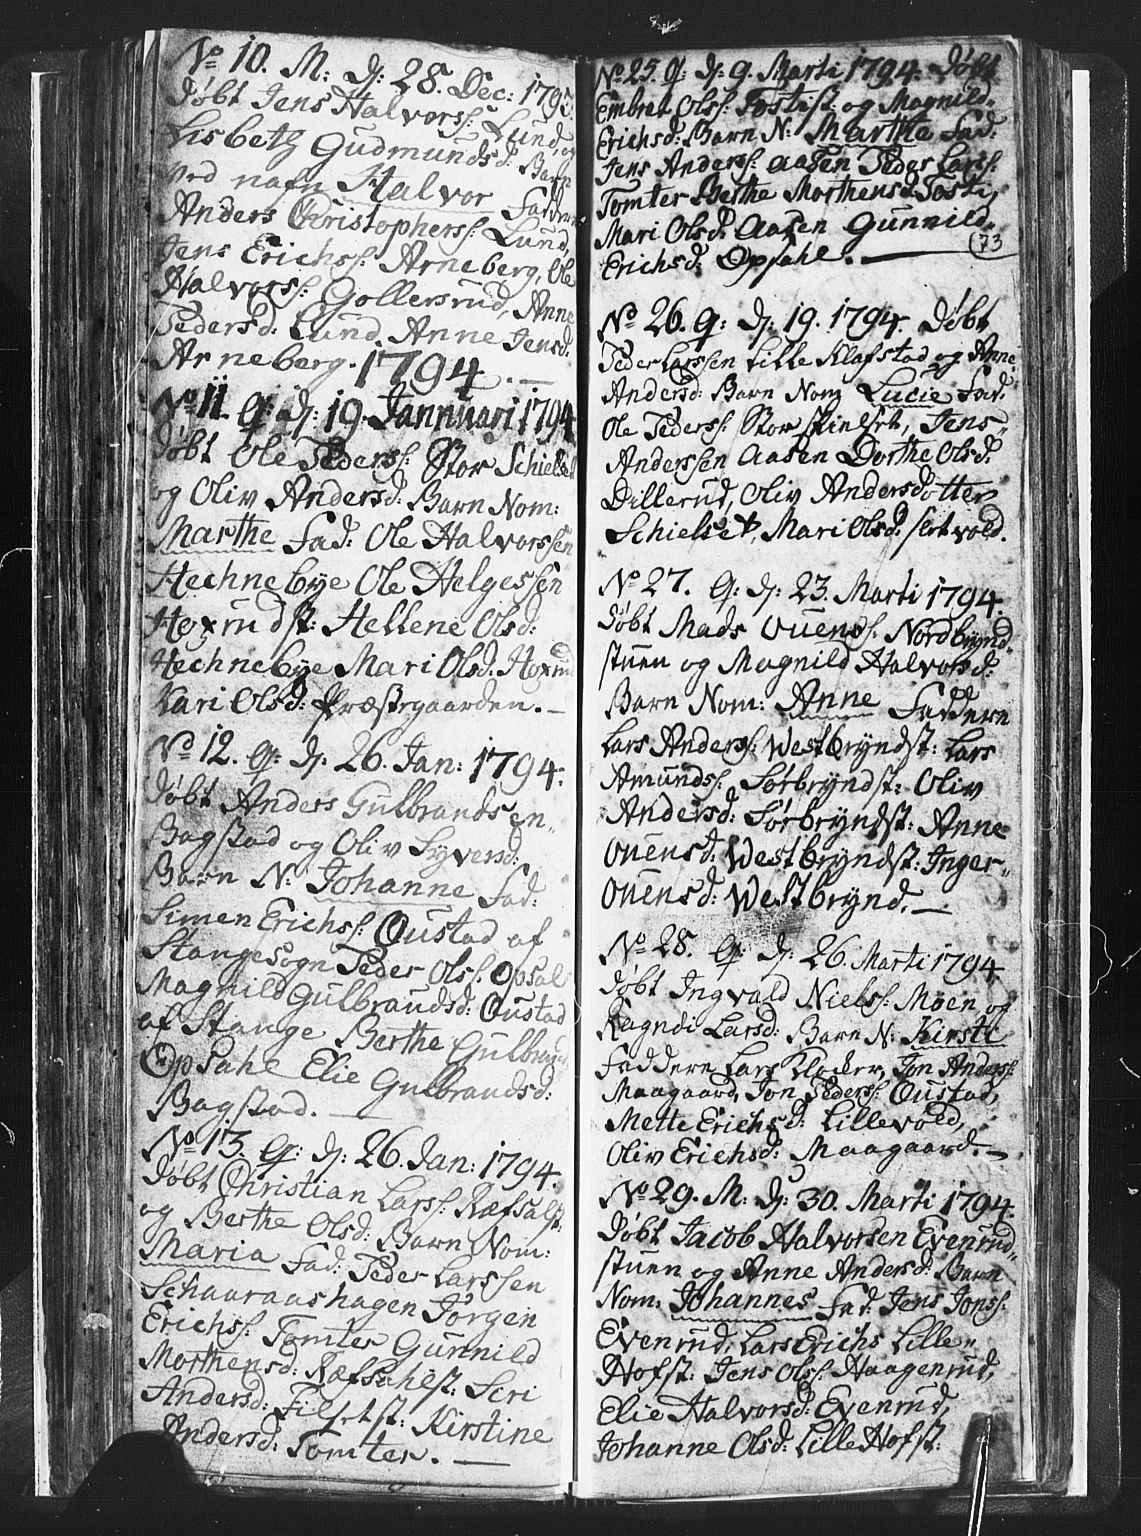 No 10. M: d: 28. Dec: 1793
Døbt Jens Halvorss: Lund, og
Lisbeth Gudmundsd: Barn
ved nafn Halvor Faddere
Anders Christopherss: Lund,
Jens Erichss: Arneberg, Ole
Halvorss: Gollersrud, Anne
Pedersd: Lund, Anne Jensd:
Arneberg. 1794. —
No 11. G: d: 19. Jannuari 1794
Døbt Ole Pederss: Stor Schielset
og Oliv Andersd: Barn Nom:
Marthe Fad: Ole Halvorssen
Hechnebye Ole Helgessen
Hoxrudst: Hellene Olsd:
Hechnebye Mari Olsd: Hoxrud
Kari Olsd: Præstegaarden. —
No 12. G: d: 26. Jan: 1794.
Døbt Anders Gulbrandsen
Bagstad og Oliv Syversd:
Barn N: Johanne Fad:
Simen Erichss: Oustad af
Stangesogn Peder Olss: Opsal
Magnild Gulbrandsd: Oustad
af Stange Berthe Gulbrandsd
Opsahl Elie Gulbrandsd:
Bagstad. —
No 13. G: d: 26. Jan: 1794.
Døbt Christian Larss: Ræfsalst:
og Berthe Olsd: Barn Nom:
Maria Fad: Peder Larssen
Schaaraashagen Jørgen
Erichss: Tomter Gunnild
Morthensd: Ræfsahlst: Seri
Andersd: Filsetst: Kirstine
Andersd: Tomter. —
No 25. G: d: 9. Marti 1794. Døbt
Embret Olss: Tostist og Magnild
Erichsd: Barn N: Marthe Fad:
Jens Anderss: Aasen Peder Larss:
Tomter Berthe Morthensd: Tosti,
Mari Olsd: Aasen Gunnild
Erichsd: Opsahl. —
73
No 26. G: d: 19. 1794. Døbt
Peder Larssen Lille Klafstad og Anne
Andersd: Barn Nom Lucie Fad:
Ole Pederss: Stor skielset, Jens
Anderssen Aasen Dorthe Olsd:
Dillerud, Oliv Andersdotter
Schielset, Mari Olsd: setvold.
No 27. G: d: 23. Marti 1794.
Døbt Mads Ouenss: Nordbrynd
stuen og Magnild Halvorsd:
Barn Nom: Anne Faddere
Lars Anderss: Westbryndst: Lars
Amundss: Sørbryndst: Oliv
Andersd: Sørbryndst: Anne
Ouensd: Westbryndst: Inger
Ouensd: Westbrynd. —
No 28. G: d: 26. Marti 1794
Døbt Ingvald Nielss: Moen og
Ragndi Larsd: Barn N: Kirsti
Faddere Lars Klocker, Jon Anderss:
Maagaard, Jon Pederss: Oustad,
Mette Erichsd: Lillevold,
Oliv Erichsd: Maagaard. —
No 29. M: d: 30. Marti 1794.
Døbt Jacob Halvorsen Evenrud
stuen og Anne Andersd: Barn
Nom: Johannes Fad: Jens Jonss:
Evenrud, Lars Erichs Lille
Hofst: Jens Olss: Haagenrud,
Elie Halvorsd: Evenrud,
Johanne Olsd: Lille Hofst: